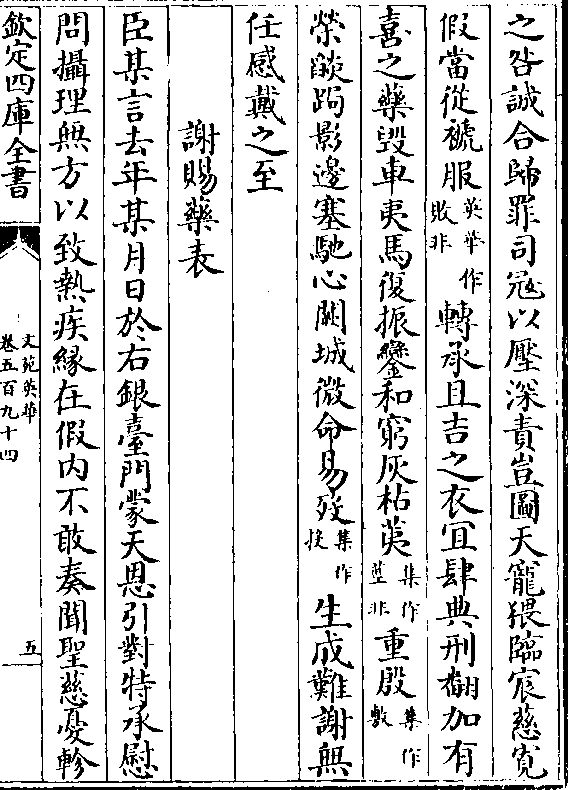 之咎誠合歸罪司冦以壓深責豈圖天寵猥臨宸慈寛
假當從褫服英華作敗非轉承且吉之衣冝肆典刑翻加有
喜之藥毀車夷馬復振鑾和窮灰枯荑集作荎非重殷集作敷
榮燄跼影邊塞馳心闕城微命易歿集作投生成難謝無
任感戴之至
謝賜藥表
臣某言去年某月日於右銀臺門蒙天恩引對特承慰
問攝理無方以致熱疾緣在假内不敢奏聞聖慈憂軫
欽定四庫全書
文苑英華
卷五百九十四
五